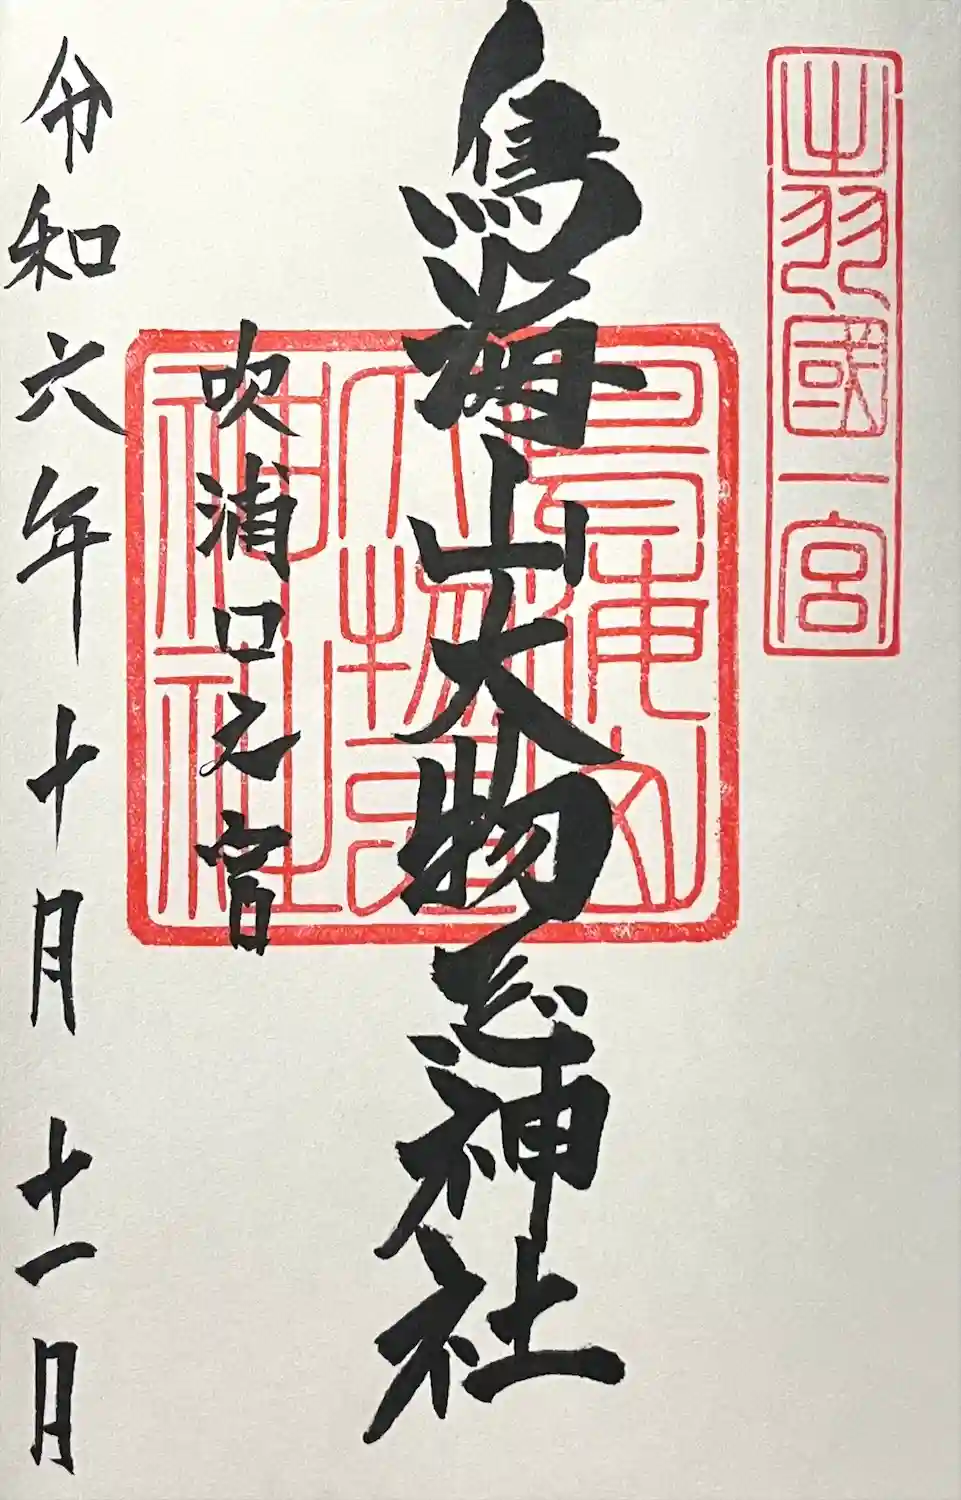 出羽國一宮
鳥海山大物忌神社
吹浦口之宮
令和六年十月十一日
鳥海山
大物忌
神社